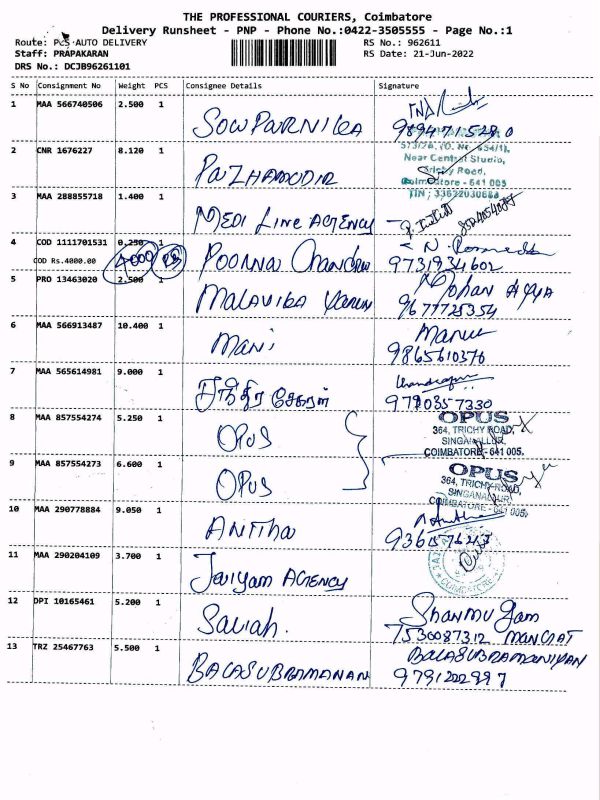 THE PROFESSIONAL COURIERS, Coimbatore
Delivery Runsheet - PNP - Phone No.:0422-3505555 - Page No.:1
Route: PCS AUTO DELIVERY RS No.: 962611
Staff: PRAPAKARAN RS Date: 21-Jun-2022
DRS No.: DCJB96261101
S No Consignment No Weight PCS Consignee Details Signature
1 MAA 566740506 2.500 1
SOWPARNIKA
573/2B, (O. No. 654/1),
Near Central Studio,
Trichy Road,
Coimbatore - 641 005
2 CNR 1676227 8.120 1
3 MAA 288855718 1.400 1
MEDI LINE AGENCY
4 COD 1111701531 0.250 1
COD Rs.4000.00 4000 POORNA Chandru 9731934602
5 PRO 13463020 2.500 1
MALAVIKA 9677725354
6 MAA 566913487 10.400 1
Mani 9865610370
7 MAA 565614981 9.000 1
சந்திர சேகரன் 9790357330
8 MAA 857554274 5.250 1
OPUS
OPUS
364, TRICHY ROAD,
SINGANALLUR,
COIMBATORE - 641 005.
9 MAA 857554273 6.600 1
OPUS
OPUS
364, TRICHY ROAD,
SINGANALLUR,
COIMBATORE - 641 005.
10 MAA 290778884 9.050 1
ANITHA
11 MAA 290204109 3.700 1
AGENCY
COIMBATORE
12 DPI 10165461 5.200 1
Shanmugam
7530087312
13 TRZ 25467763 5.500 1 BALASUBRAMANIYAN
BALASUBRAMANAN 9791222997